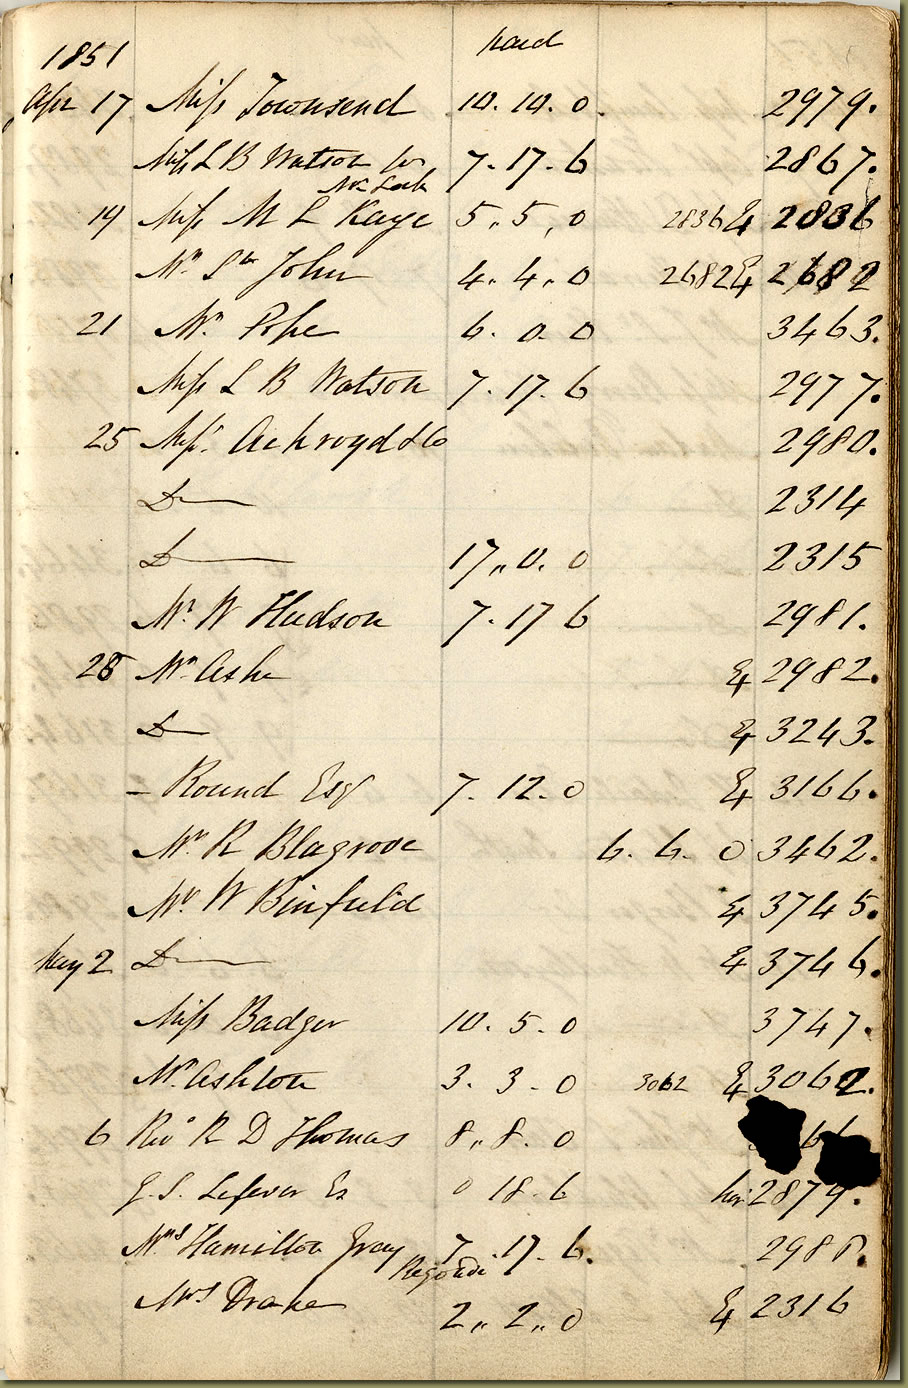 1851 paid
Apr 17 Miss Townsend 14. 14. 0 2979.
Miss L B Watson 7. 17. 6 2867.
19 Miss M L Kaye 5. 5. 0 2836 2836
Mr St John 4. 4. 0 2682 2682
21 Mr Pope 6. 0. 0 3463.
Miss L B Watson 7. 17. 6 2977.
25 Messrs Ackroyd & Co 2980.
Do 2314
Do 17. 0. 0 2315
Mr W Hudson 7. 17 6 2981.
28 Mr Ashe 2982.
Do 3243.
– Round Esqr 7. 12. 0 3166.
Mr R Blagrove 6. 6. 0 3462.
Mr W Binfield 3745.
May 2 Do 3746.
Miss Badger 10. 5. 0 3747.
Mr Ashton 3. 3. 0 3062 3062.
6 Revd R D Thomas 8. 8. 0
G. S. Lefevre Es 0 18. 6 2879.
Mrs Hamilton Gray 7. 17. 6. 2988.
Regondi
Mrs Drake 2. 2. 0 2316